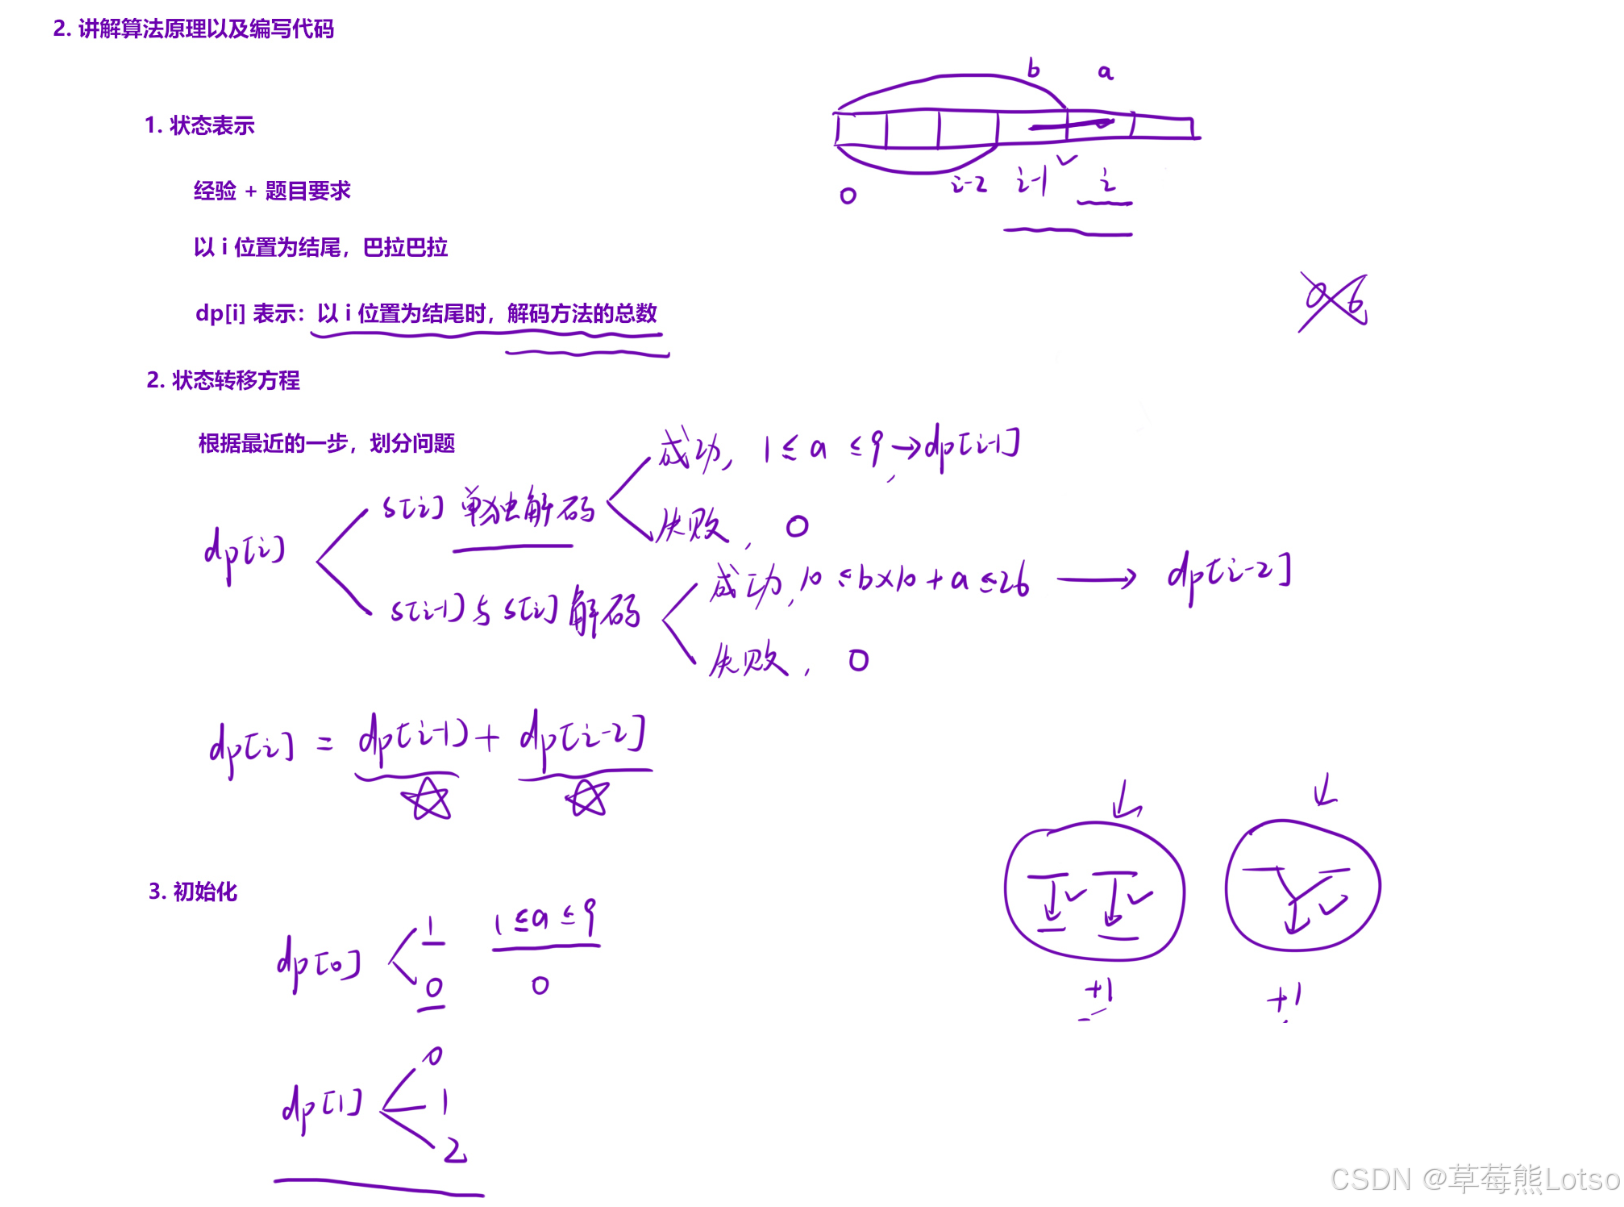 2. 讲解算法原理以及编写代码
b a
1. 状态表示
经验 + 题目要求
0 i-2 i-1 i
以 i 位置为结尾，巴拉巴拉
06
dp[i] 表示：以 i 位置为结尾时，解码方法的总数
2. 状态转移方程
根据最近的一步，划分问题
成功, 1 ≤ a ≤ 9 → dp[i-1]
s[i] 单独解码
失败, 0
dp[i]
成功, 10 ≤ b×10 + a ≤ 26 → dp[i-2]
s[i-1] 与 s[i] 解码
失败, 0
dp[i] = dp[i-1] + dp[i-2]
3. 初始化
1 1 ≤ a ≤ 9
dp[0]
0 0
+1 +1
0
dp[1] 1
2
CSDN @草莓熊Lotso